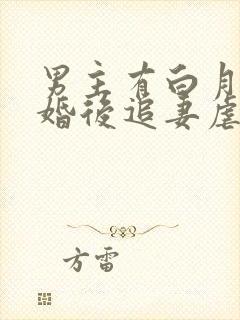 男主有白月
婚後追妻虐
方雷